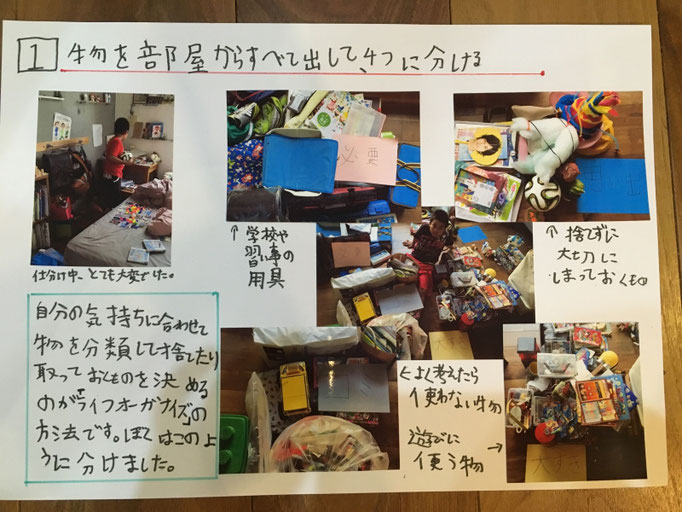 1 物を部屋からすべて出して、4つに分ける
必要
思い出
↑学校や
習い事の
用具
↑捨てずに
大切に
しまっておくもの
仕分け中、とても大変でした。
自分の気持ちに合わせて
物を分類して捨てたり
取っておくものを決める
のが「ライフオーガナイズ」の
方法です。ぼくはこのよ
うに分けました。
←よく考えたら
使わない物
遊びに →
使う物